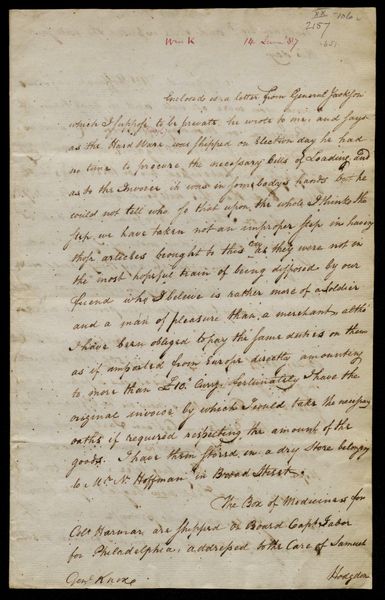 2157
Wm K 14 June 87
Enclosed is a letter from General Jackson
which I suppose to be private he wrote to me and says
as the Hard Ware was shipped on Election day he had
no time to procure the necessary bills of Loading and
as to the Invoice it was in some bodys hands but he
could not tell who so that upon the whole I think the
step we have taken not an improper step in having
those articles brought to this as they were not in
the most hopeful train of being disposed by our
friend who I believe is rather more of a soldier
and a man of pleasure than a merchant, altho
I have been obliged to pay the same duties on them
as if imported from Europe directly amounting
to more than Curry fortunately I have the
original invoice by which I would take the necessary
oaths if required respecting the amount of the
goods. I have them stored in a dry Store belonging
to Mr N. Hoffman in Broad Street.
The Box of Medicines for
Colo Harmar are shipped on Board Capt Tabor
for Philadelphia, addressed to the Care of Samuel
Genl Knox Hodgdon